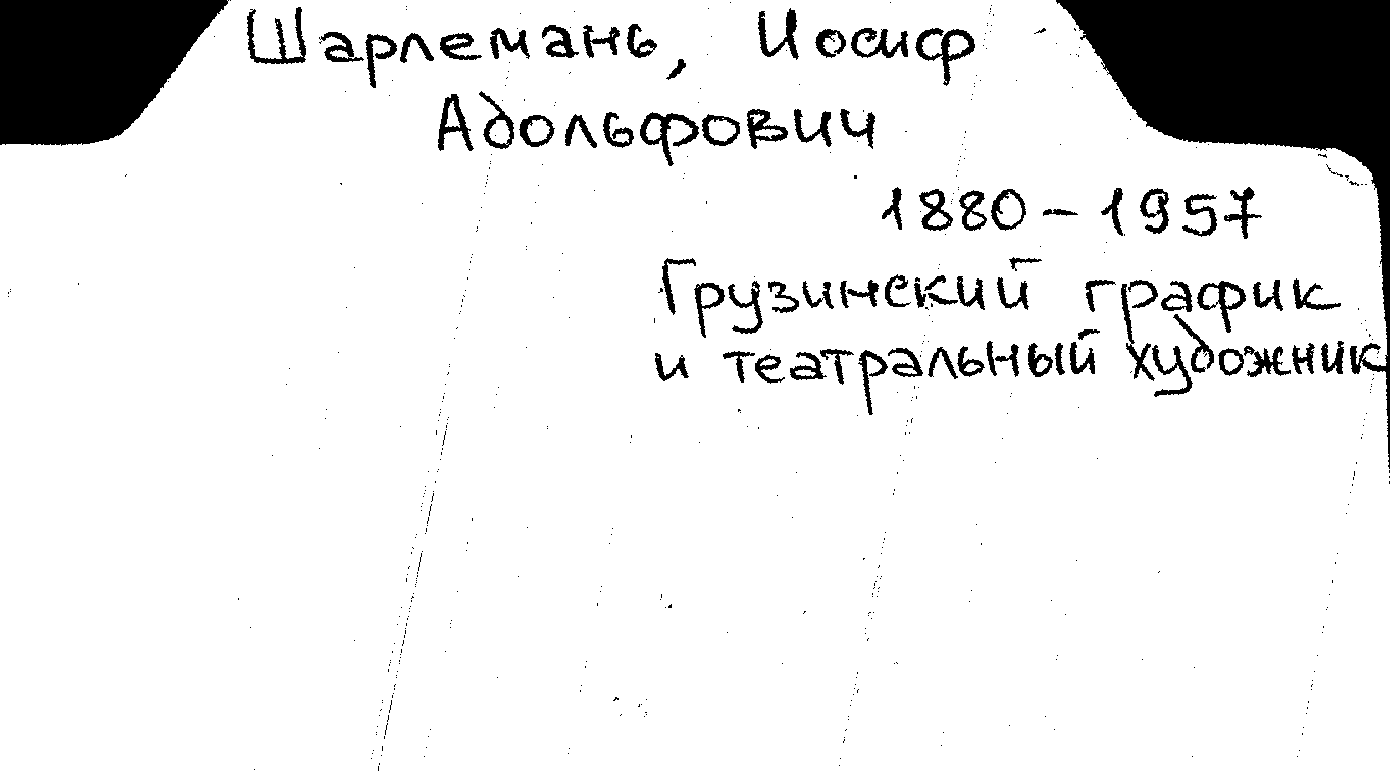 Шарлемань, Иосиф
Адольфович
1880 – 1957
Грузинский график
и театральный художник